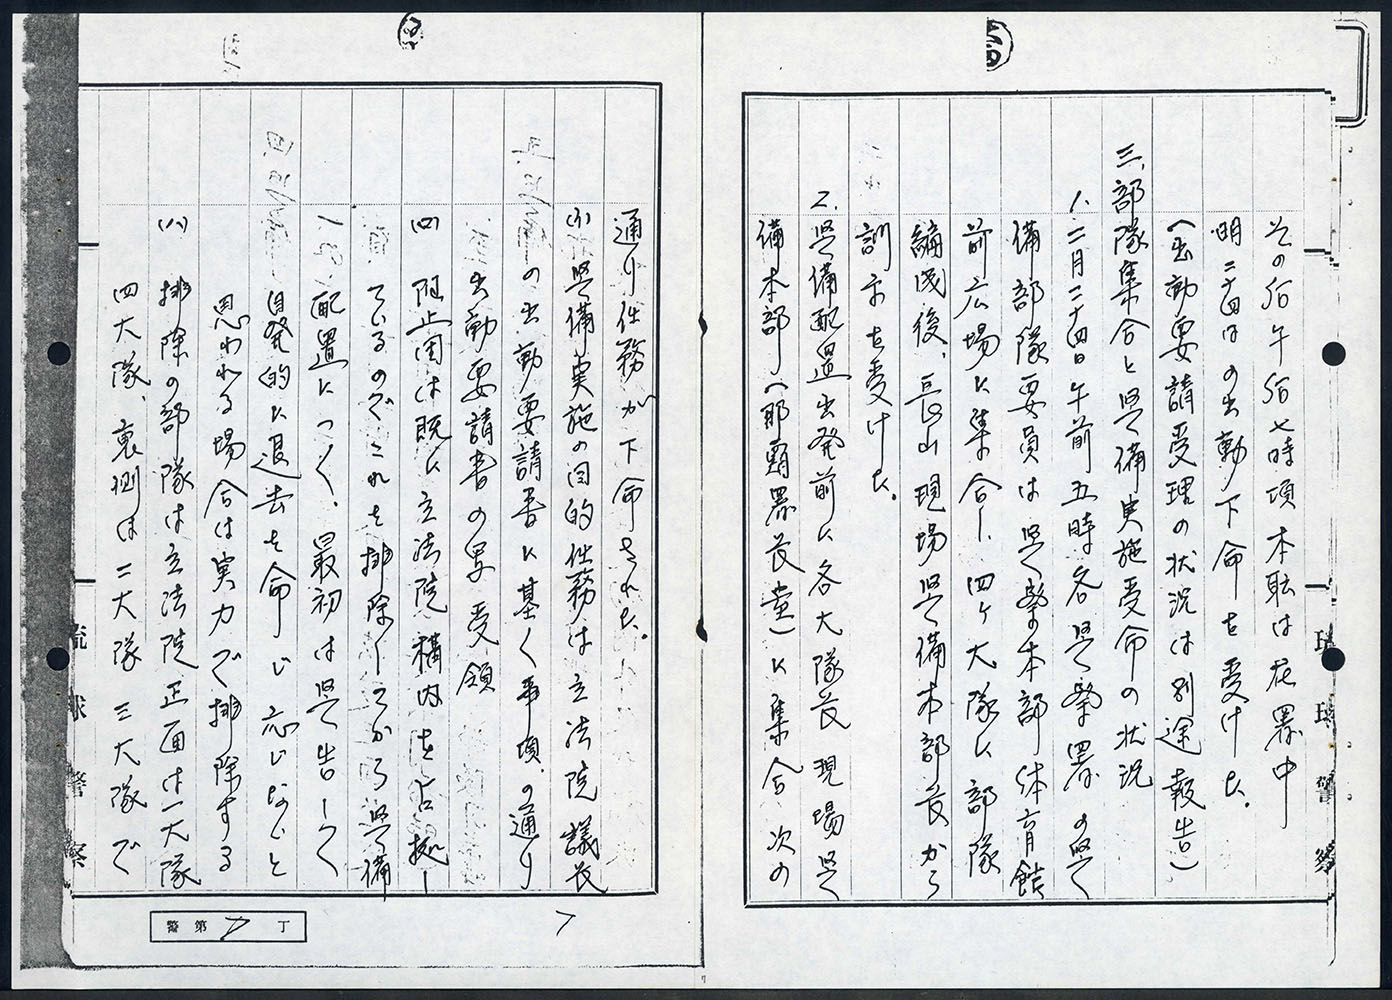 その日午后七時頃本職は在署中
明二十四日の出動下命を受けた。
(出動要請受理の状況は別途報告)
三、部隊集合と警備実施受命の状況
1、二月二十四日午前五時各警察署の警
備部隊要員は警察本部体育館
前広場に集合し、四ヶ大隊に部隊
編成後、長山現場警備本部長から
訓示を受けた。
2、警備配置出発前に各大隊長現場警
備本部(那覇署長室)に集合次の
通り任務が下命された。
(イ)警備実施の目的任務は立法院議長
の出動要請書に基く事項の通り
出動要請書の写受領
(ロ)阻止団は既に立法院構内を占拠し
ているのでこれを排除してから警備
配置につく、最初は警告して
自発的に退去を命じ応じないと
思われる場合は実力で排除する
(ハ)排除の部隊は立法院正面は一大隊
四大隊、裏側は二大隊三大隊で
琉球警察
琉球警察
警第7丁
7